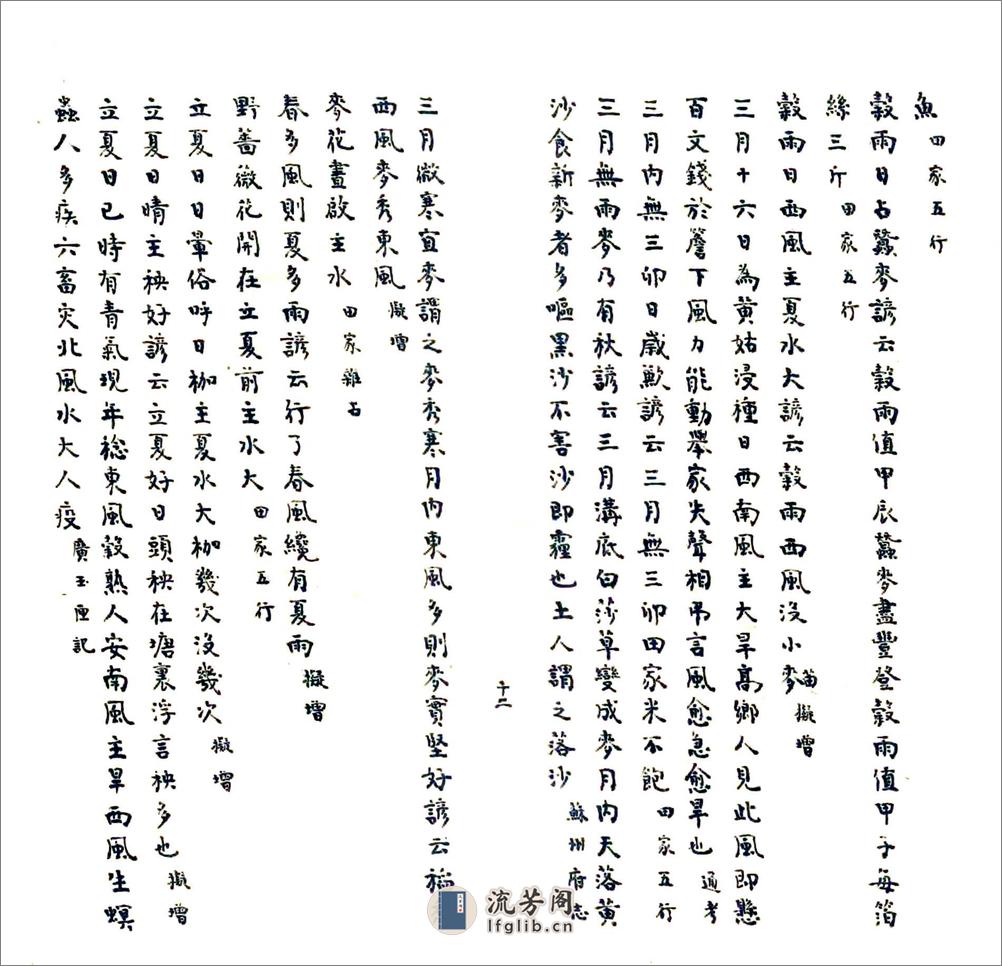 魚田家五行
穀雨日占蠶麥諺云穀雨值甲辰蠶麥盡豐登穀雨值甲子每箔
絲三斤田家五行
穀雨日西風主夏水大諺云穀雨西風沒小麥苗擬增
三月十六日為黃姑浸種日西南風主大旱高鄉人見此風即懸
百文錢於簷下風力能動舉家失聲相弔言風愈急愈旱也通考
三月內無三卯日歲歉諺云三月無三卯田家米不飽田家五行
三月無雨麥乃有秋諺云三月溝底白莎草變成麥月內天落黃
沙食新麥者多嘔黑沙不害沙即霾也土人謂之落沙蘇州府志
十二
三月微寒宜麥謂之麥秀寒月內東風多則麥實堅好諺云稻
西風麥秀東風擬增
麥花晝啟主水田家雜占
春多風則夏多雨諺云行了春風纔有夏雨擬增
野薔薇花開在立夏前主水大田家五行
立夏日日暈俗呼日枷主夏水大枷幾次沒幾次擬增
立夏日晴主秧好諺云立夏好日頭秧在塘裏浮言秧多也擬增
立夏日巳時有青氣現年稔東風穀熟人安南風主旱西風生螟
蟲人多疾六畜灾北風水大人疫廣玉匣記
流芳阁
lfglib.cn